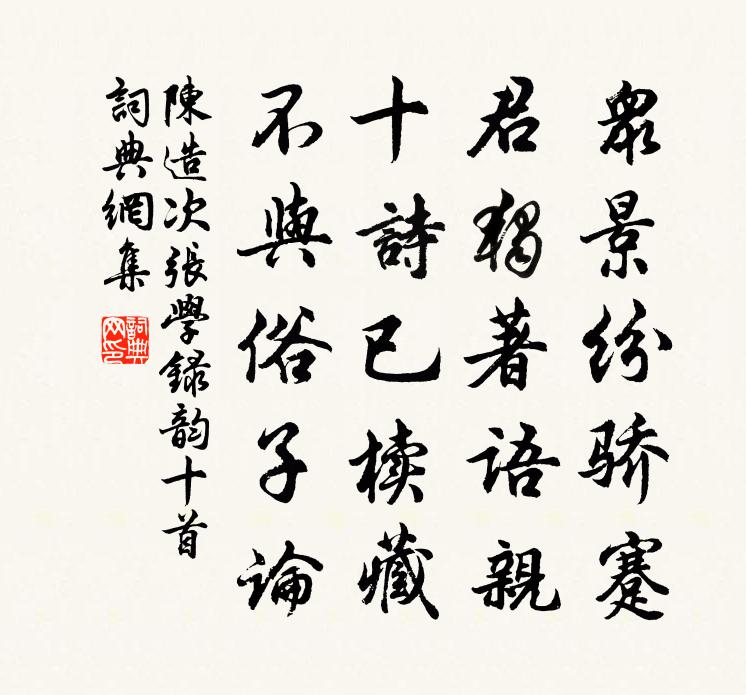 眾景紛骄蹇
君獨著語親
十詩已櫝藏
不與俗子論
陳造次張學録韵十首
詞典網集
詞典网印